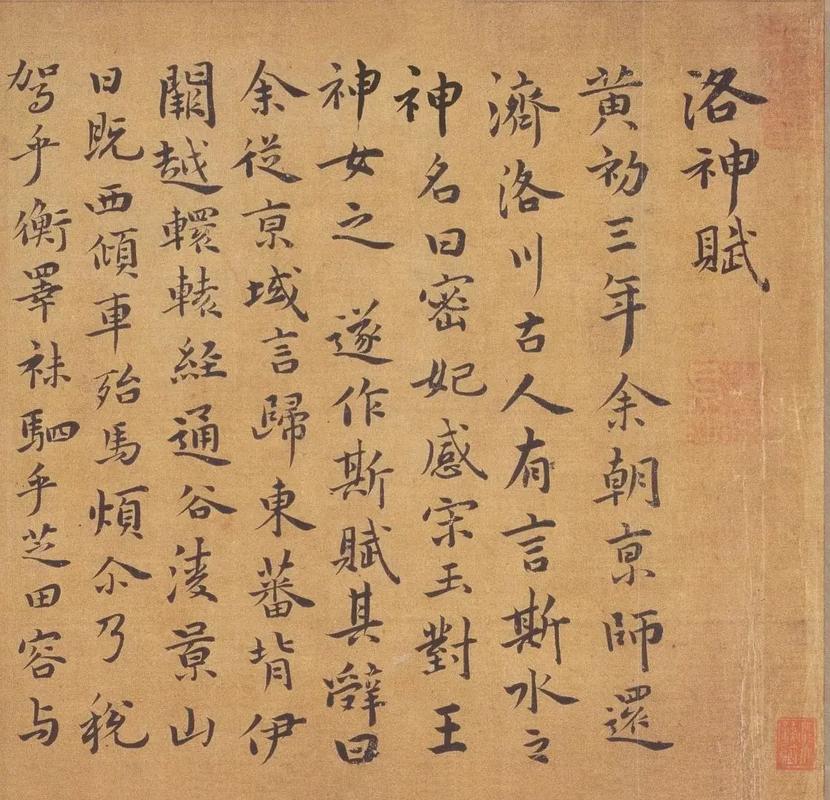 洛神賦
黄初三年余朝亰師還
濟洛川古人有言斯水之
神名曰密妃感宋玉對王
神女之 遂作斯賦其辭曰
余從亰域言歸東蕃背伊
闕越轘轅経通谷淩景山
日既西傾車殆馬煩尒乃稅
駕乎衡睪秣駟乎芝田容与